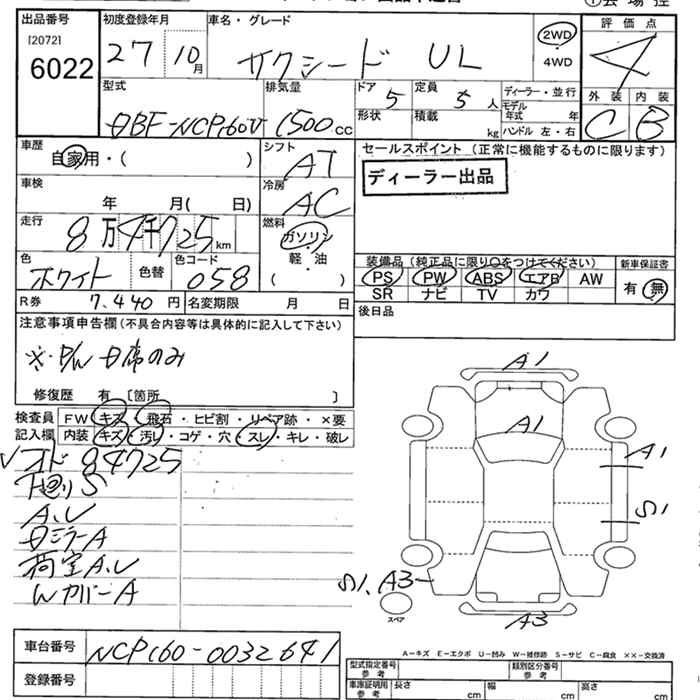 出品番号
[2072]
6022
初度登録年月
27 10月
車名・グレード
サクシード UL
2WD
・
4WD
評価点
4
外装 内装
C B
型式
DBF-NCP160V
排気量
1500cc
ドア
5
形状
定員
5人
積載
kg
ディーラー・並行
モデル
年式 年
ハンドル 左・右
車歴
自家用・( )
シフト
AT
車検
年 月( 日)
冷房
AC
走行
8万4千725km
燃料
ガソリン
・
軽・油
( )
色
ホワイト
色替
色コード
058
R券 7,440円 名変期限 月 日
セールスポイント (正常に機能するものに限ります)
ディーラー出品
装備品(純正品に限り○をつけてください)
PS PW ABS エアB AW
SR ナビ TV カワ
新車保証書
有・無
後日品
注意事項申告欄(不具合内容等は具体的に記入して下さい)
修復歴 有 〔箇所 〕
検査員
記入欄
FW キズ・飛石・ヒビ割・リペア跡・×要
内装 キズ・汚レ・コゲ・穴・スレ・キレ・破レ
84725
下廻りS
A.U
ミラーA
荷室A.U
カバーA
A1
A1
A1
S1
S1.A3
スペア
A3
A-キズ E-エクボ U-凹み W-補修跡 S-サビ C-腐食 ××-交換済
車台番号
NCP160-0032641
登録番号
型式指定番号
参考
類別区分番号
参考
車庫証明用
参考
長さ cm 幅 cm 高さ cm